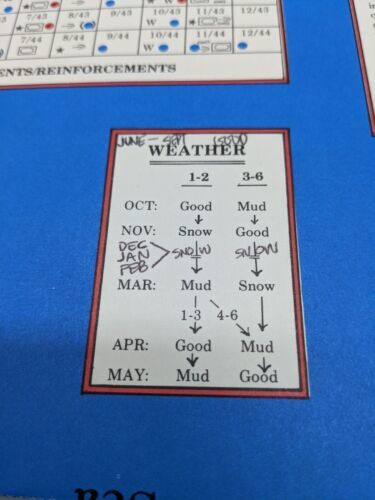 7/43 8/43 9/43 10/43 11/43 12/43
W
7/44 8/44 9/44 10/44 11/44 12/44
W W
ENTS/REINFORCEMENTS
JUNE - SEPT GOOD
WEATHER
1-2 3-6
OCT: Good Mud
NOV: Snow Good
DEC
JAN SNOW SNOW
FEB
MAR: Mud Snow
1-3 4-6
APR: Good Mud
MAY: Mud Good
Sea